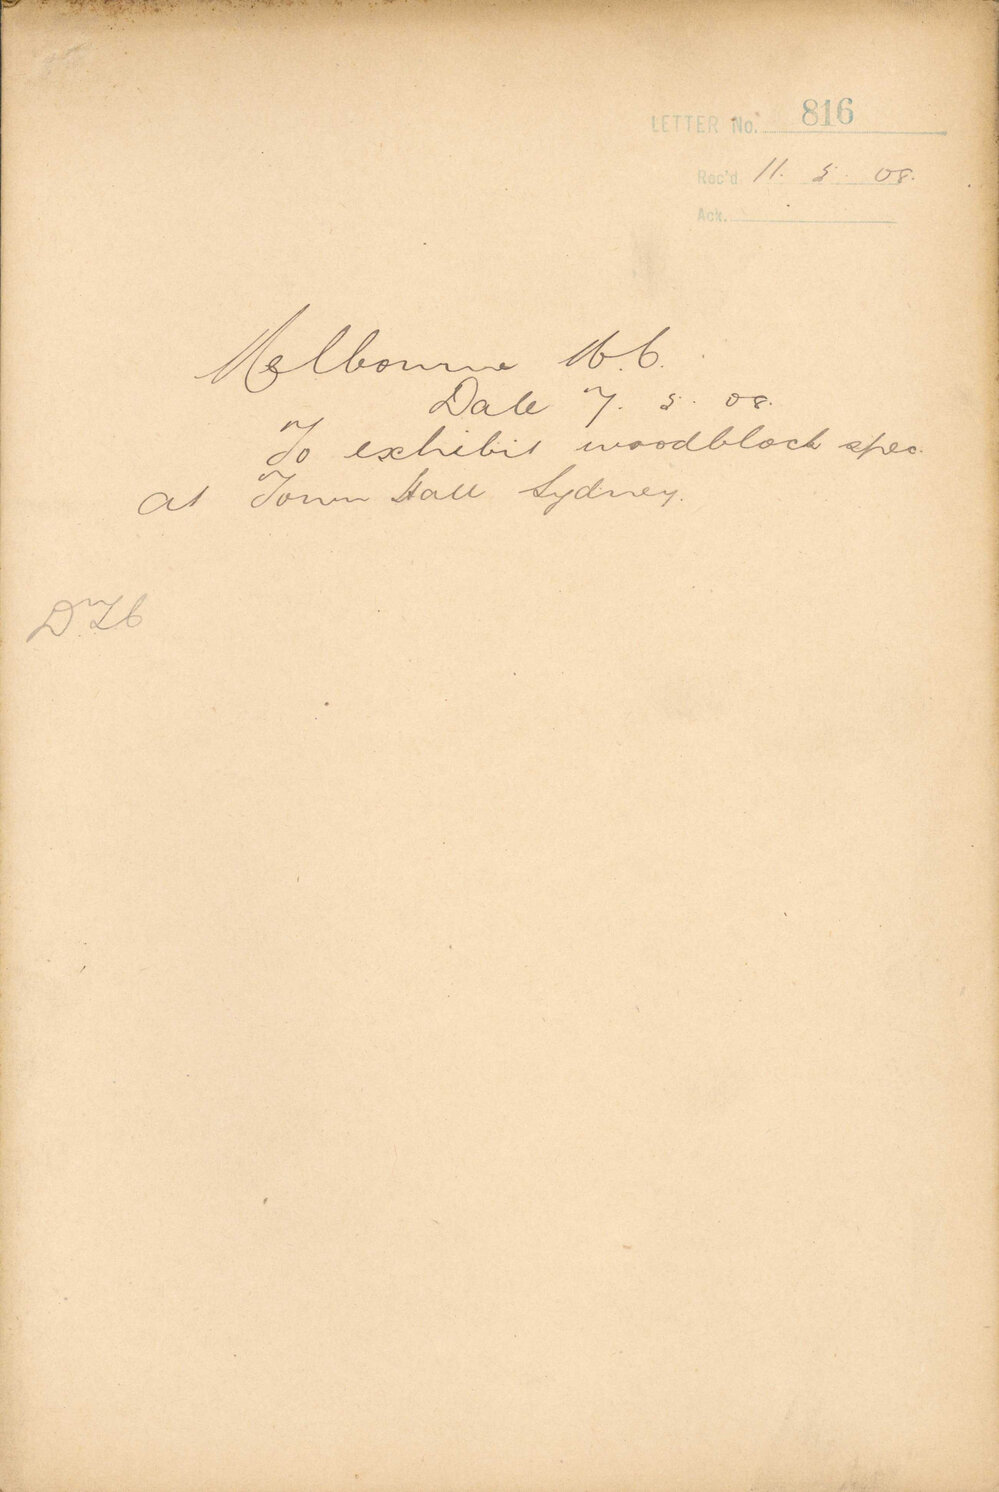 LETTER No. 816
Rec'd 11. 5. 08.
Ack.
Melbourne
Date 7. 5. 08.
To exhibit woodblock spec.
at Town Hall Sydney.